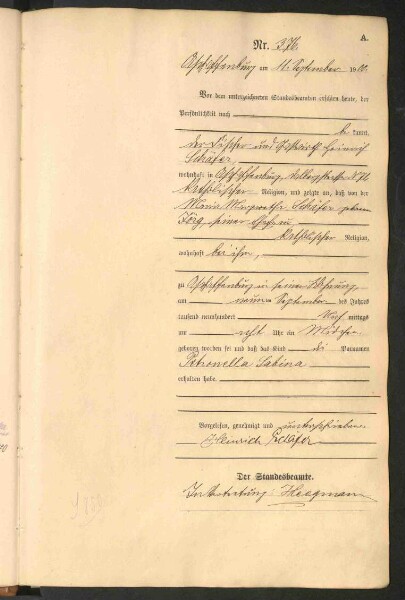 A.
Nr. 376.
Aschaffenburg am 11. September 1900.
Vor dem unterzeichneten Standesbeamten erschien heute, der
Persönlichkeit nach
be kannt,
der Fischer und Gastwirth Heinrich
Schäfer,
wohnhaft in Aschaffenburg,
katholischer Religion, und zeigte an, daß von der
Maria Margaretha Schäfer geborene
Jörg, seiner Ehefrau
katholischer Religion,
wohnhaft bei ihm,
zu Aschaffenburg in seiner Wohnung
am neun September des Jahres
tausend neunhundert Nach mittags
um acht Uhr ein Mädchen
geboren worden sei und daß das Kind die Vornamen
Petronella Sabina
erhalten habe.
Vorgelesen, genehmigt und unterschrieben
Heinrich Schäfer
Der Standesbeamte.
In Vertretung: